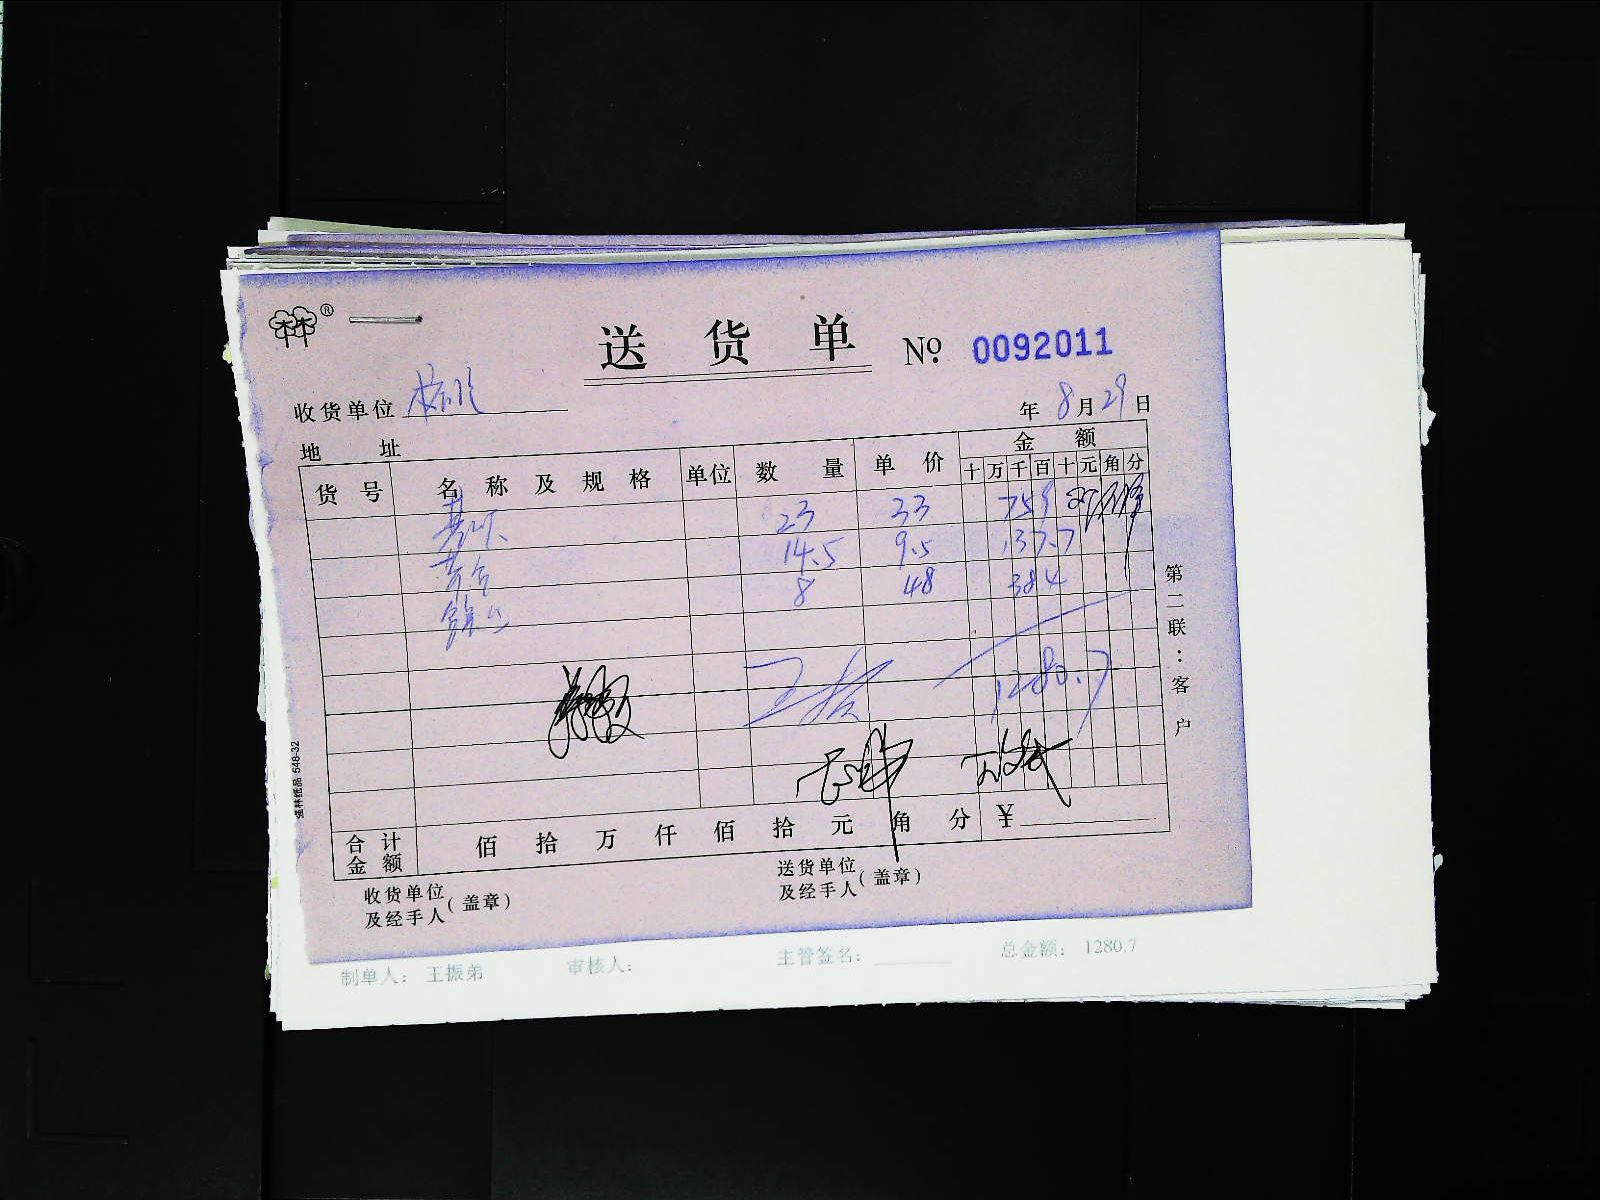 林林®
送货单 № 0092011
收货单位
年 8月29日
地址
货号 名称及规格 单位 数量 单价 金额
十万千百十元角分
23 33 759
14.5 9.5 137.7
8 48 384
1280.7
合计金额 佰拾万仟佰拾元角分 ¥
收货单位及经手人(盖章) 送货单位及经手人(盖章)
第二联：客户
强林纸品 548-32
制单人： 王振弟 审核人： 主管签名： 总金额： 1280.7